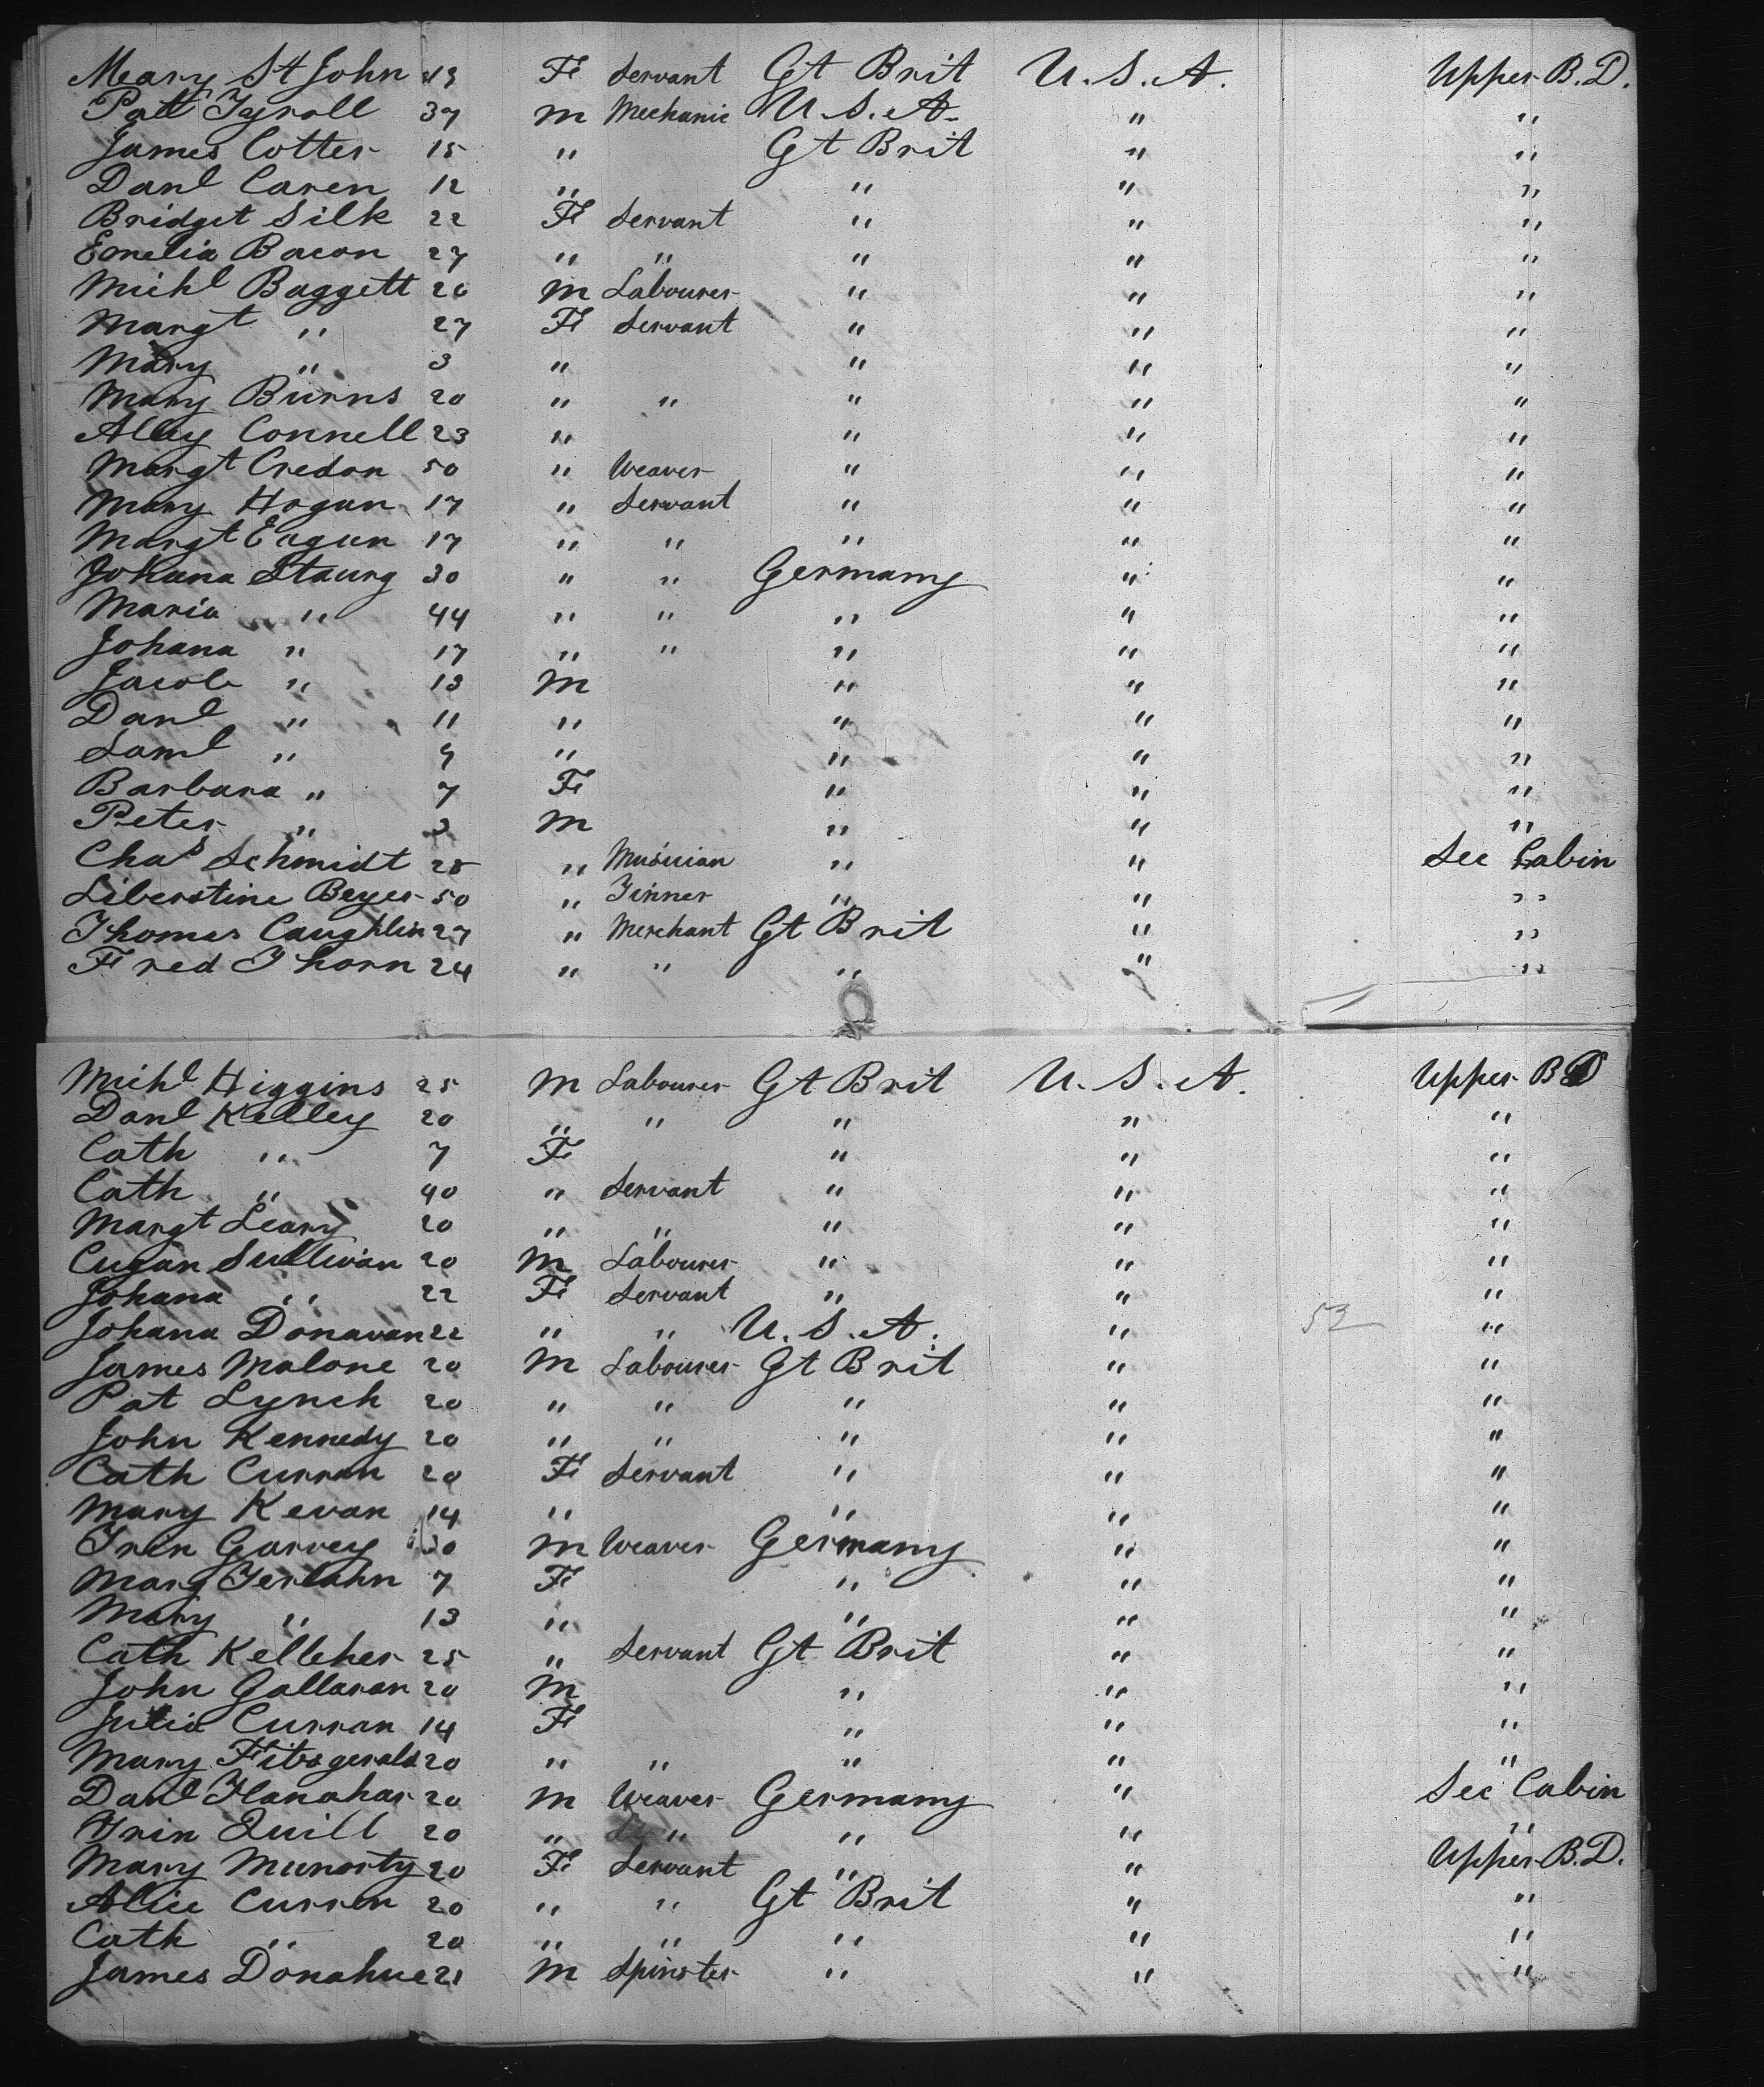 Mary St John 19 F Servant Gt Brit U. S. A. Upper B. D.
Patt Tyroll 37 M Mechanic U. S. A. " "
James Cotter 15 " Gt Brit " "
Danl Caren 12 " " " "
Bridget Silk 22 F Servant " " "
Emelia Bacon 27 " " " " "
Michl Baggett 26 M Labourer " " "
Margt " 27 F Servant " " "
Mary " 3 " " " "
Mary Burns 20 " " " " "
Alley Connell 23 " " " "
Margt Credon 50 " Weaver " " "
Mary Hogan 17 " Servant " " "
Margt Eagan 17 " " " " "
Johana Staurg 30 " " Germany " "
Maria " 44 " " " " "
Johana " 17 " " " " "
Jacob " 13 M " " "
Danl " 11 " " " "
Saml " 9 " " " "
Barbara " 7 F " " "
Peter " 3 M " " "
Chas Schmidt 28 " Musician " " Sec Cabin
Liberstine Beyer 50 " Tinner " " "
Thomas Caughlin 27 " Merchant Gt Brit " "
Fred Thorn 24 " " " " "
Michl Higgins 25 M Labourer Gt Brit U. S. A. Upper B D
Danl Kelley 20 " " " " "
Cath " 7 F " " "
Cath " 40 " Servant " " "
Margt Leary 20 " " " " "
Sullivan 20 M Labourer " " "
Johana " 22 F Servant " " "
Johana Donavan 22 " " U. S. A. " 52 "
James Malone 20 M Labourer Gt Brit " "
Pat Lynch 20 " " " " "
John Kennedy 20 " " " " "
Cath Curran 20 F Servant " " "
Mary Kevan 14 " " " "
Garvey 30 M Weaver Germany " "
Marg Terlahn 7 F " " "
Mary " 13 " " " "
Cath Kelleher 25 " Servant Gt Brit " "
John Gallaran 20 M " " "
Julia Curran 14 F " " "
Mary Fitzgerald 20 " " " " "
Danl Hanahar 20 M Weaver Germany " Sec Cabin
Quill 20 " " " " "
Mary Munorty 20 F Servant " " Upper B. D.
Alice Curren 20 " " Gt Brit " "
Cath " 20 " " " " "
James Donahue 21 M Spinster " " "